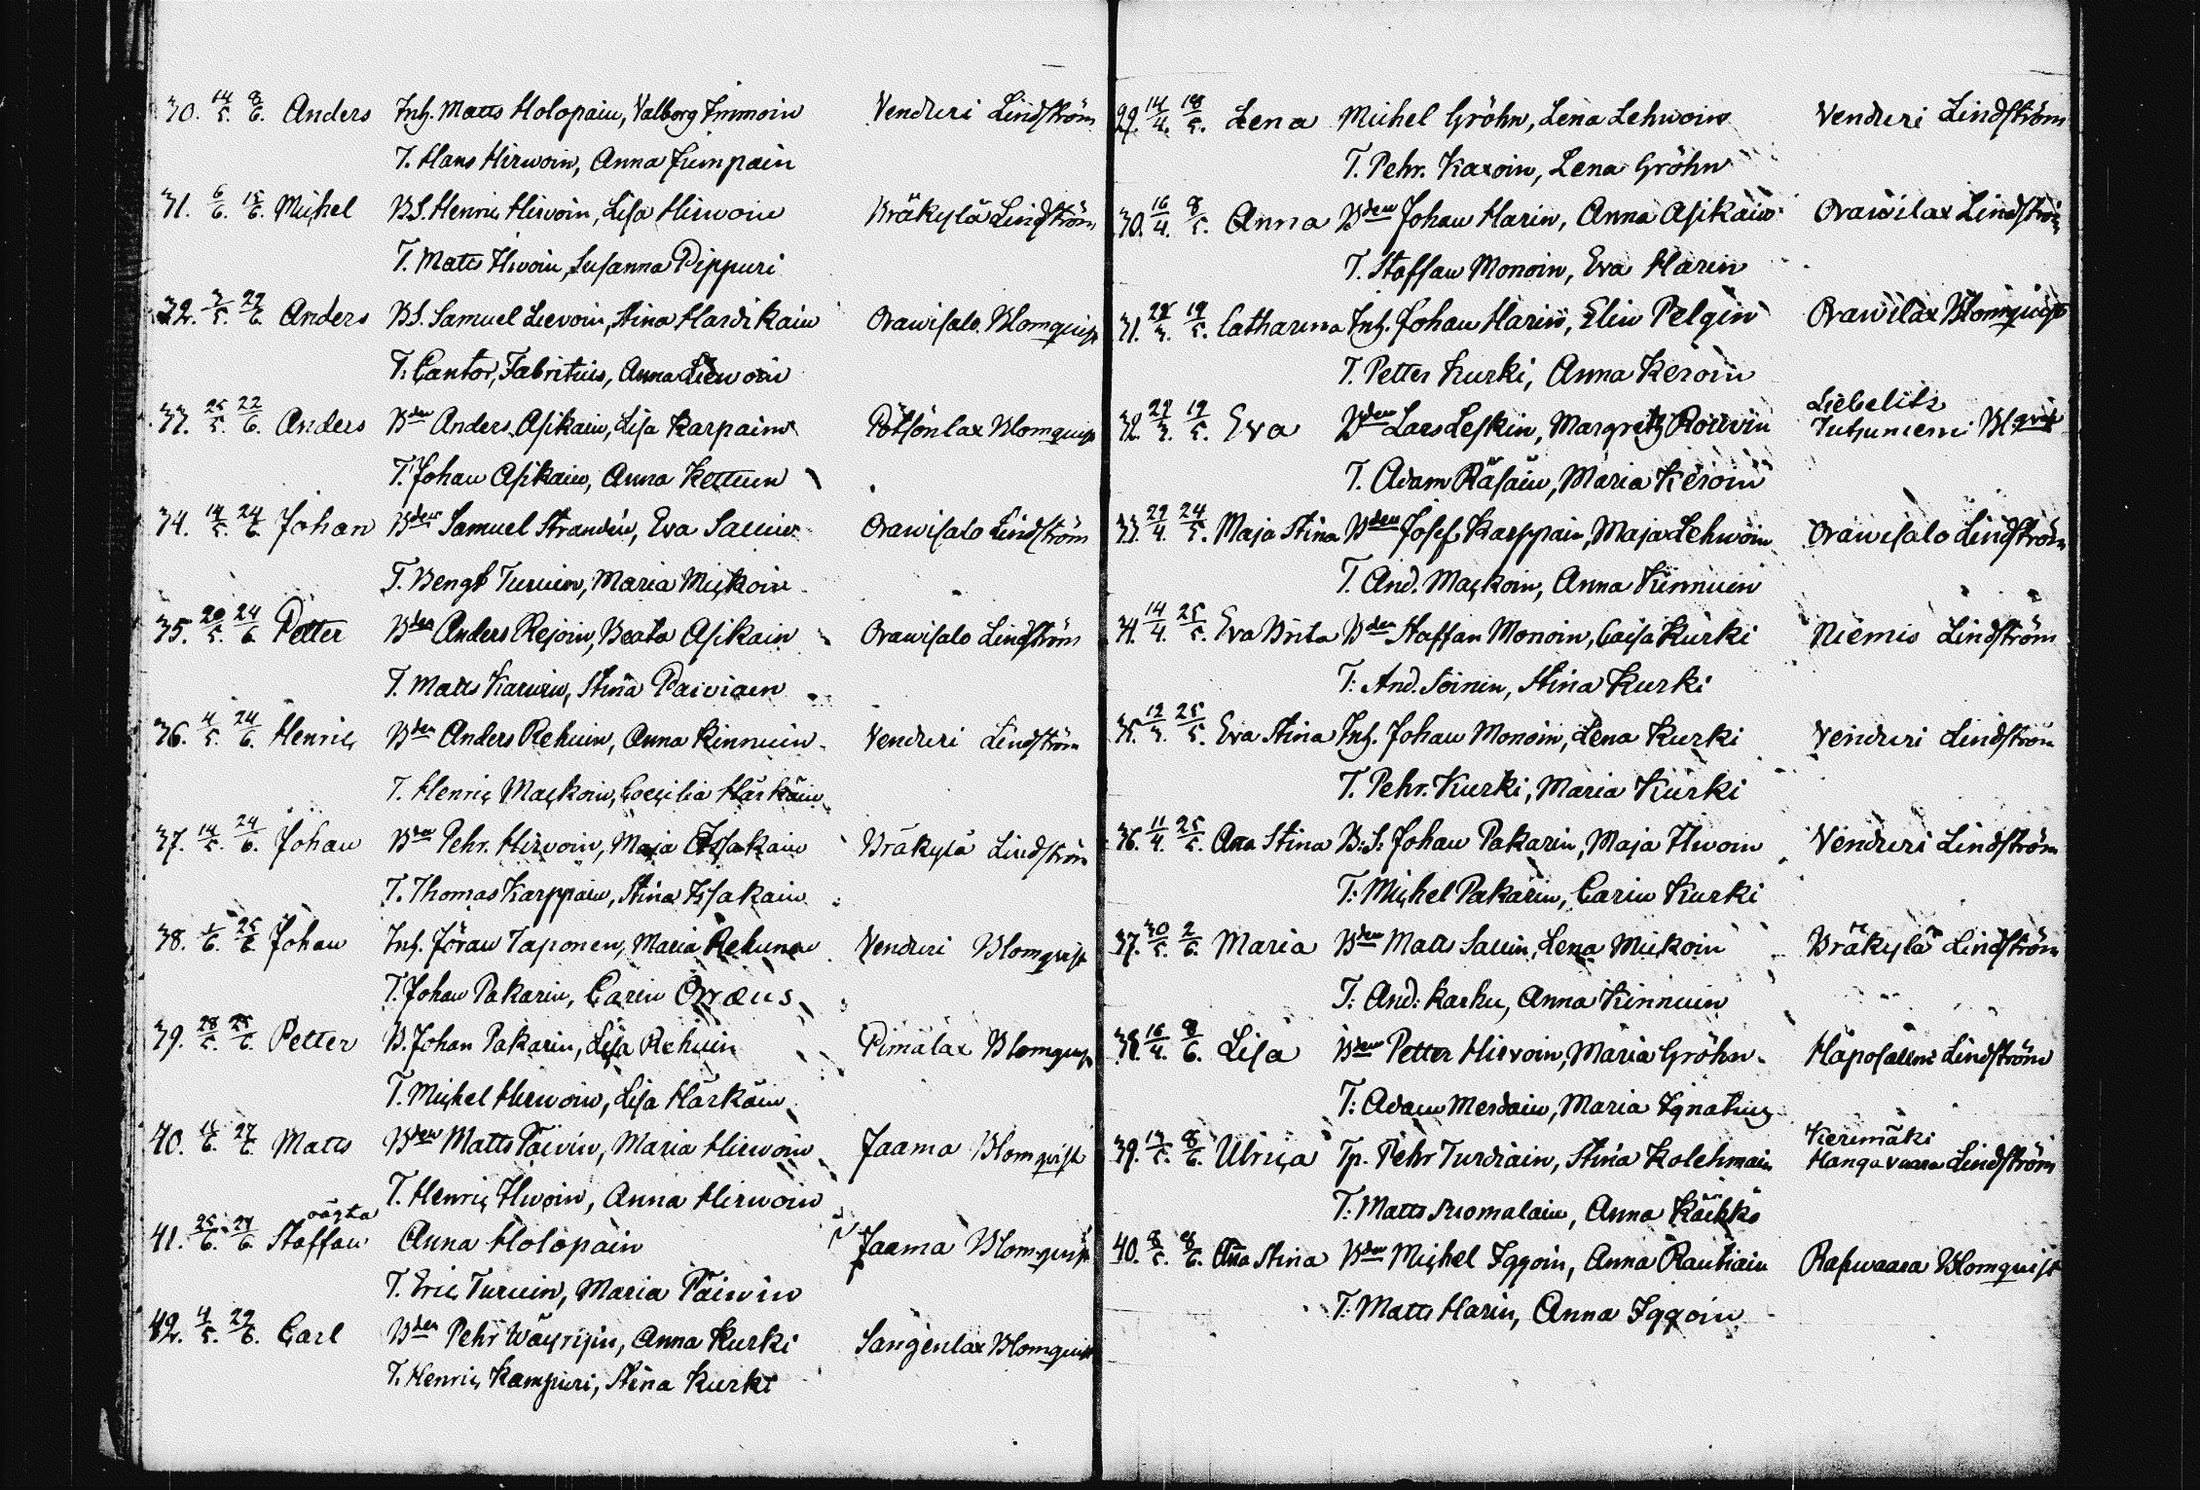 30. 14/5. 8/6. Anders Inh. Matts Holopain, Valborg Immoin Venduri Lindström
T. Hans Hirwoin, Anna Jumpain
31. 6/6. 15/6. Michel BS. Henric Hirvoin, Lisa Hirwoin Bräkylä Lindström
T. Matts Hwoin, Susanna Pippuri
32. 3/5. 22/6. Anders BS. Samuel Lievoin, Stina Hardikain Orawisalo Blomquist
T. Cantor, Fabritius, Anna Liewoin
33. 25/5. 22/6. Anders Bden Anders Asikain, Lisa Karpain Pötsönlax Blomquist
T. Johan Asikain, Anna Kettuin
34. 14/5. 24/6. Johan Bden Samuel Strandén, Eva Sauin Orawisalo Lindström
T. Bengt Turuin, Maria Mickoin
35. 20/5. 24/6. Petter Bden Anders Rejoin, Beata Asikain Orawisalo Lindström
T. Matts Karwin, Stina Paiviain
36. 4/5. 24/6. Henric Bden Anders Rehuin, Anna Kinnuin Venduri Lindström
T. Henric Mackoin, Coecilia Härkäin
37. 14/5. 24/6. Johan Bden Pehr. Hirvoin, Maja Issakain Bräkylä Lindström
T. Thomas Karppain, Stina Issakain
38. /6. 25/6. Johan Inh. Jöran Taponen, Maria Rehunen Venduri Blomqvist
T. Johan Pakarin, Carin Orræus
39. 28/5. 25/6. Petter B. Johan Pakarin, Lisa Rehuin Pimälax Blomquist
T. Michel Hirwoin, Lisa Härkäin
40. 15/6. 27/6. Matts Bden Matts Päivin, Maria Hirwoin Jaama Blomqvist
T. Henric Hwoin, Anna Hirwoin
oägta
41. 25/6. 27/6. Staffan Anna Holopain Jaama Blomquist
T. Eric Turuin, Maria Päiwin
42. 4/5. 29/6. Carl Bden Pehr Wäyrijin, Anna Kurki Sangenlax Blomquist
T. Henric Kampuri, Stina Kurki
29. 14/4. 18/5. Lena Michel Gröhn, Lena Lehwoin Venduri Lindström
T. Pehr. Karoin, Lena Gröhn
30. 16/4. 8/5. Anna Bden Johan Harin, Anna Asikain Orawilax Lindström
T. Staffan Monoin, Eva Harin
31. 28/3. 19/5. Catharina Inh. Johan Harin, Elin Pelgin Orawilax Blomquist
T. Petter Kurki, Anna Keroin
Liebelits
32. 29/3. 19/5. Eva Bden Lars Leskin, Margreth Roiwin Blqvist
T. Adam Räsäin, Maria Keroin
33. 29/4. 24/5. Maja Stina Bden Josef Karppain, Maja Lehwoin Orawisalo Lindström
T. And. Mackoin, Anna Kinnuin
34. 14/4. 25/5. Eva Brita Bden Staffan Monoin, Caisa Kurki Niemis Lindström
T: And. Soinin, Stina Kurki
35. 12/3. 25/5. Eva Stina Inh. Johan Monoin, Lena Kurki Venduri Lindström
T. Pehr. Kurki, Maria Kurki
36. 11/4. 25/5. Anna Stina B:S: Johan Pakarin, Maja Hwoin Venduri Lindström
T: Michel Pakarin, Carin Kurki
37. 30/5. 2/6. Maria Bden Matts Sauin, Lena Mickoin Bräkylä Lindström
T: And: Karhu, Anna Kinnuin
38. 16/4. 8/6. Lisa Bden Petter Hirvoin, Maria Gröhn Haposalmi Lindström
T: Adam Merdain, Maria Ignatius
Kerimäki
39. 13/5. 8/6. Ulrica Tp. Pehr Turdiain, Stina Kolehmain Hangavaara Lindström
T: Matts Suomalain, Anna Käikkö
40. 8/5. 8/6. Anna Stina Bden Michel Iggoin, Anna Rautiain Rahwaara Blomquist
T. Matts Harin, Anna Iggoin